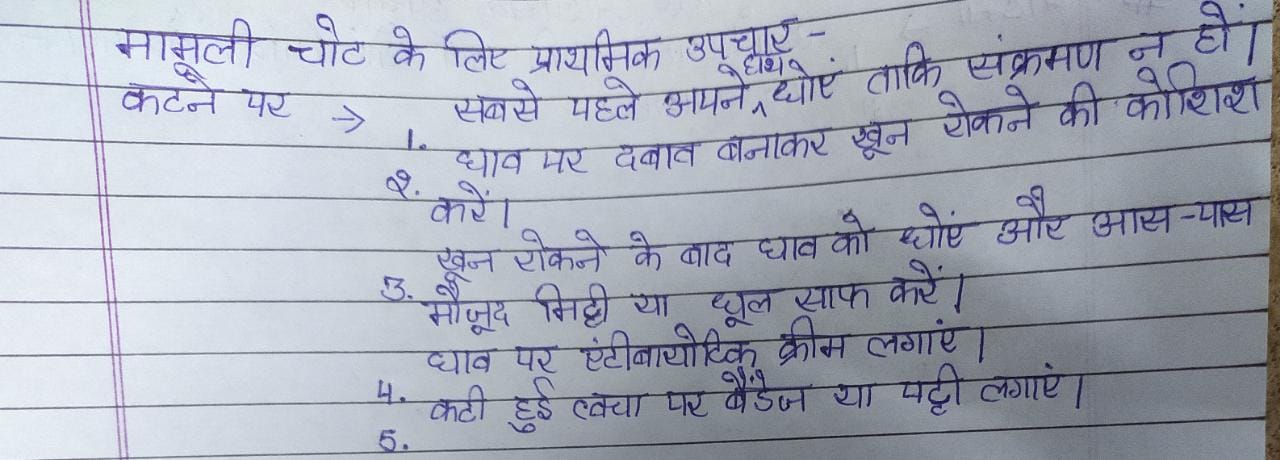 मामूली चोट के लिए प्राथमिक उपचार -
कटने पर → 1. सबसे पहले अपने हाथ धोएं ताकि संक्रमण न हों।
2. घाव पर दबाव बनाकर खून रोकने की कोशिश
करें।
3. खून रोकने के बाद घाव को धोएं और आस-पास
मौजूद मिट्टी या धूल साफ करें।
4. घाव पर एंटीबायोटिक क्रीम लगाएं।
5. कटी हुई त्वचा पर बैंडेज या पट्टी लगाएं।